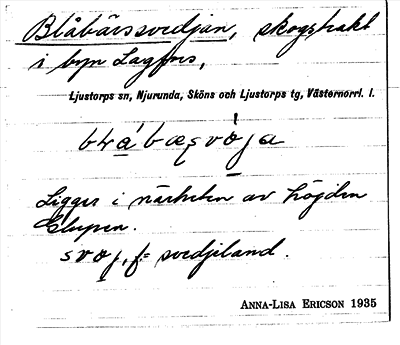 Blåbärssvedjan, skogstrakt
i byn Lagfors,
Ljustorps sn, Njurunda, Sköns och Ljustorps tg, Västernorrl. l.
Ligger i närheten av höjden
svoj, f = svedjeland.
ANNA-LISA ERICSON 1935